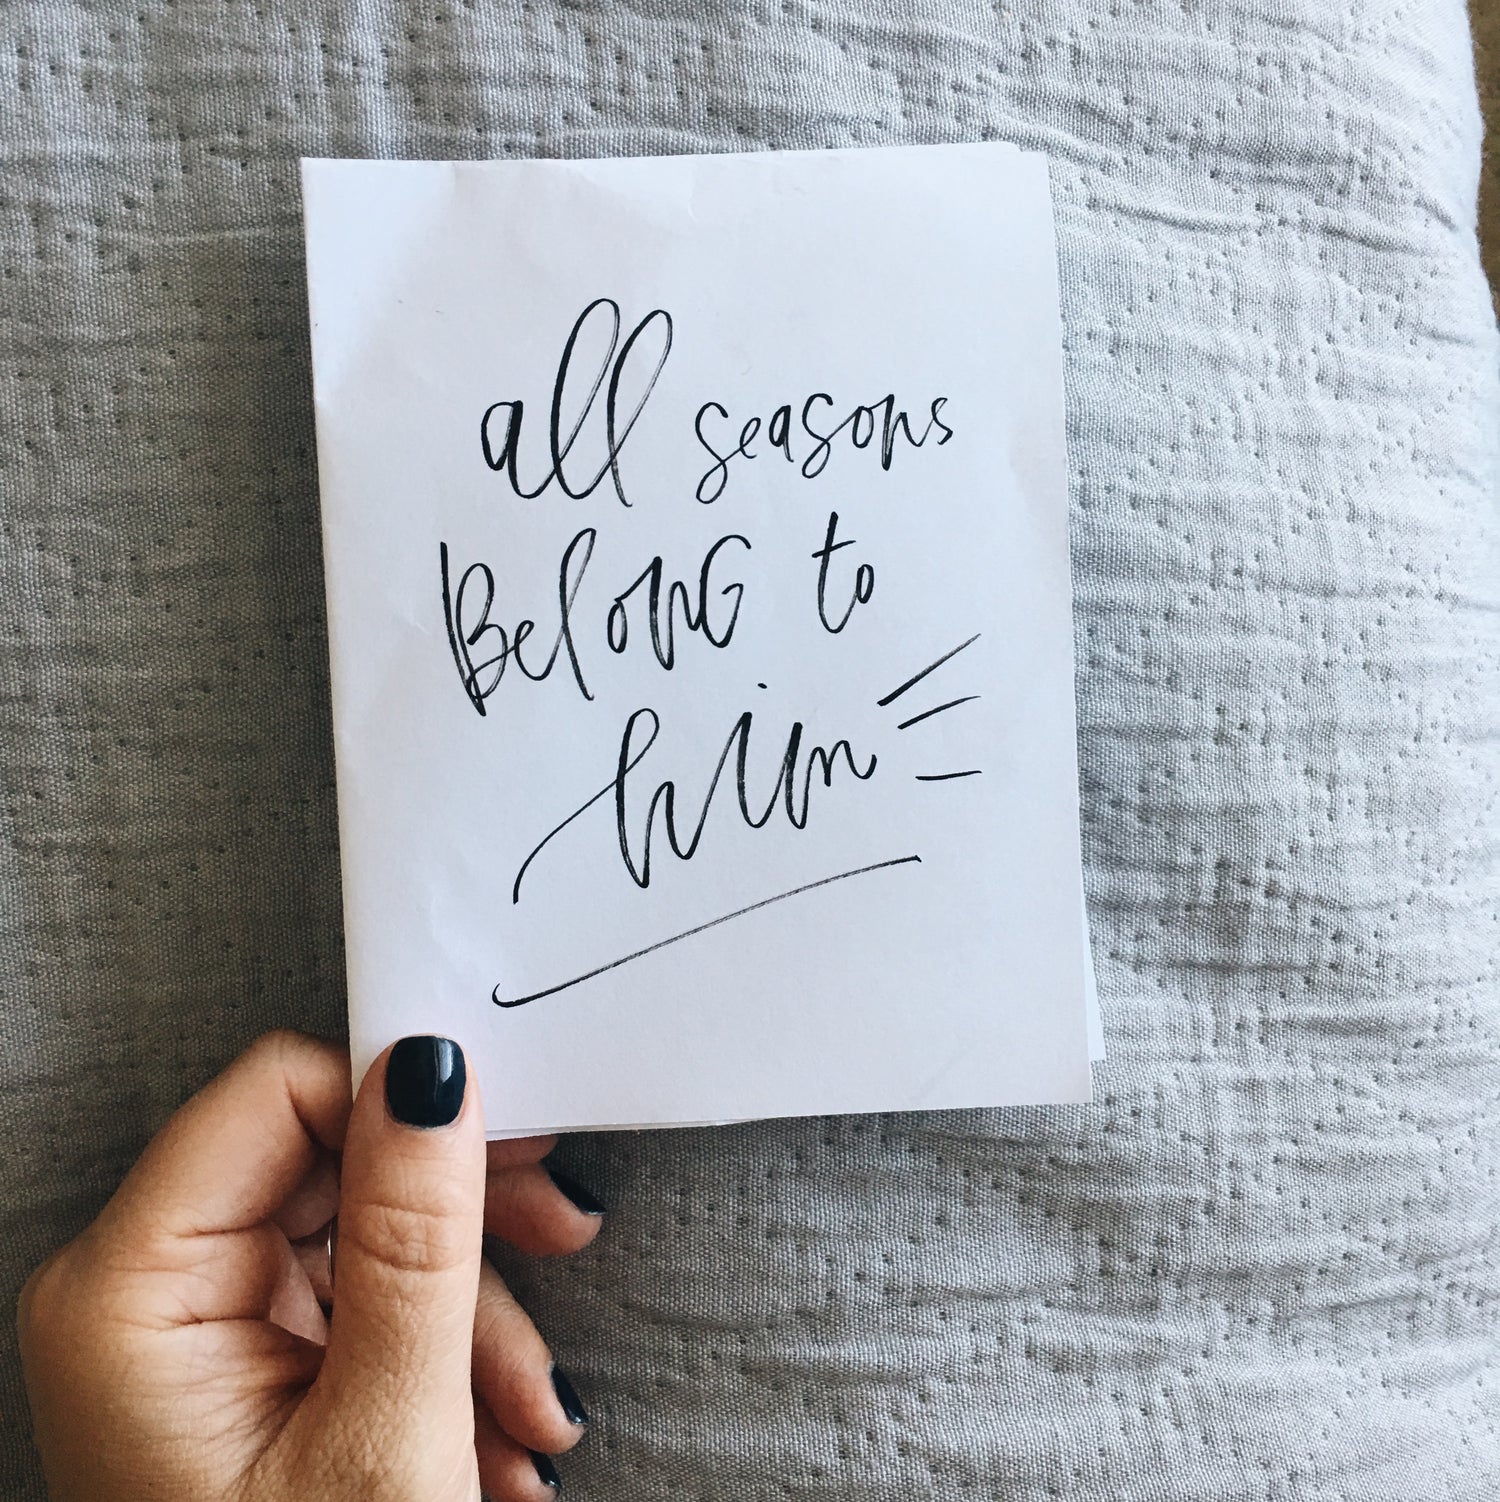 all seasons
BelonG to
him